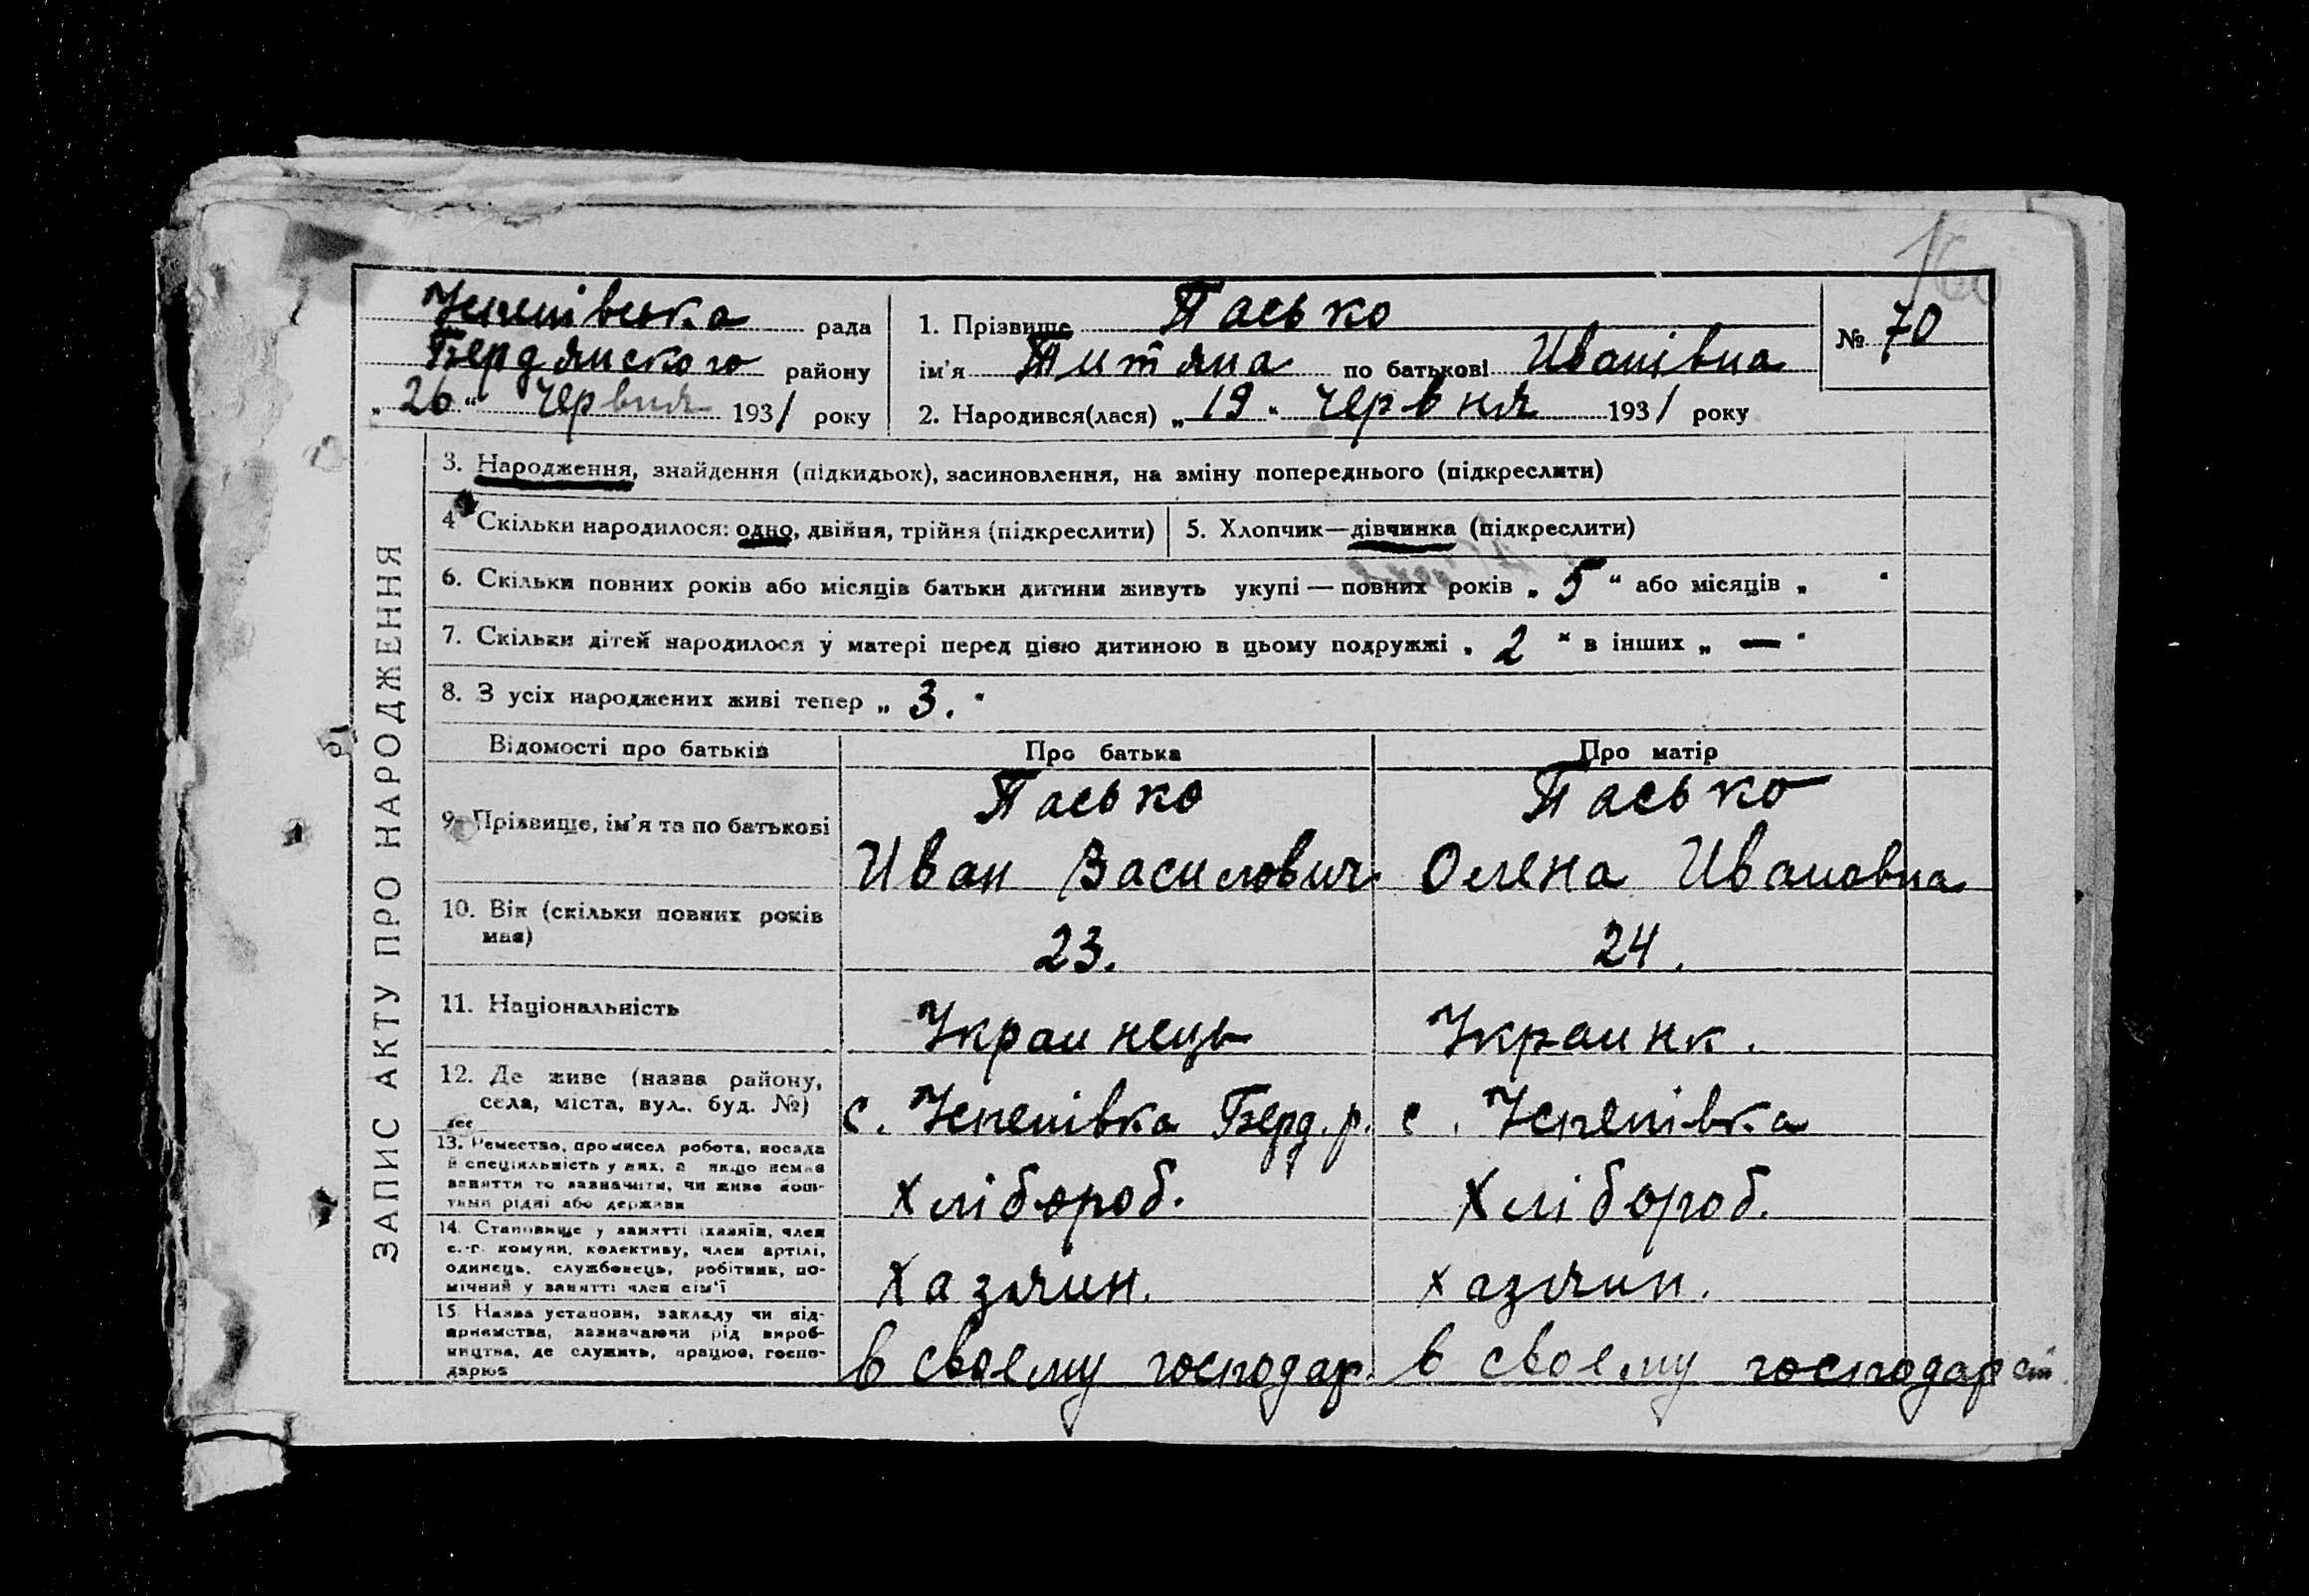 160
Успенівська рада
Бердянского району
„26“ Червня 1931 року
1. Прізвище Пасько
ім'я Титяна по батькові Иванівна
2. Народився(лася) „19“ червня 1931 року
№ 70
ЗАПИС АКТУ ПРО НАРОДЖЕННЯ
3. Народження, знайдення (підкидьок), засиновлення, на зміну попереднього (підкреслити)
4 Скільки народилося: одно, двійня, трійня (підкреслити)
5. Хлопчик—дівчинка (підкреслити)
6. Скільки повних років або місяців батьки дитини живуть укупі — повних років „5“ або місяців „ “
7. Скільки дітей народилося у матері перед цією дитиною в цьому подружжі „2“ в інших „—“
8. З усіх народжених живі тепер „3.“
Відомості про батьків Про батька Про матір
9. Прізвище, ім'я та по батькові
Пасько Пасько
Иван Василович Олена Ивановна
10. Вік (скільки повних років
має)
23. 24.
11. Національність
Украинець Украинк.
12. Де живе (назва району,
села, міста, вул., буд. №)
с. Успенівка Берд. р. с. Успенівка
13. Ремество, промисел робота, посада
й спеціяльність у них, а якщо немає
заняття то зазначити, чи живе кош-
тами рідні або держави
Хлібороб. Хлібороб.
14. Становище у занятті (хазяїн, член
с.-г. комуни, колективу, член артілі,
одинець, службовець, робітник, по-
мічний у занятті член сім'ї
Хазяин. хазяин.
15. Назва установи, закладу чи під-
приємства, зазначаючи рід вироб-
ництва, де служить, працює, госпо-
дарює
в своему господар. в своему господарст